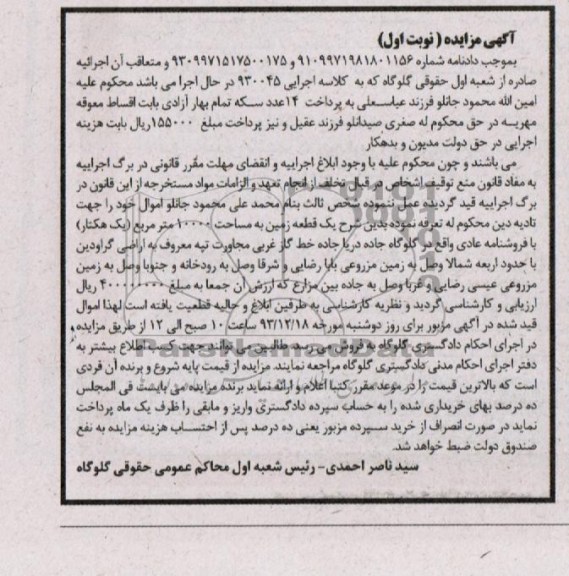 آگهی مزایده (نوبت اول)
بموجب دادنامه شماره ۹۱۰۹۹۷۱۹۸۱۸۰۱۱۵۶ و ۹۳۰۹۹۷۱۵۱۷۵۰۰۱۷۵ و متعاقب آن اجرائیه
صادره از شعبه اول حقوقی گلوگاه که به کلاسه اجرایی ۹۳۰۰۴۵ در حال اجرا می باشد محکوم علیه
امین الله محمود جانلو فرزند عباسعلی به پرداخت ۱۴عدد سکه تمام بهار آزادی بابت اقساط معوقه
مهریه در حق محکوم له صغری صیدانلو فرزند عقیل و نیز پرداخت مبلغ ۱۵۵۰۰۰ریال بابت هزینه
اجرایی در حق دولت مدیون و بدهکار
می باشند و چون محکوم علیه با وجود ابلاغ اجراییه و انقضای مهلت مقرر قانونی در برگ اجراییه
به مفاد قانون منع توقیف اشخاص در قبال تخلف از انجام تعهد و الزامات مواد مستخرجه از این قانون در
برگ اجراییه قید گردیده عمل ننموده شخص ثالث بنام محمد علی محمود جانلو اموال خود را جهت
تادیه دین محکوم له تعرفه نموده بدین شرح یک قطعه زمین به مساحت ۱۰۰۰۰ متر مربع (یک هکتار)
با فروشنامه عادی واقع در گلوگاه جاده دریا جاده خط گاز غربی مجاورت تپه معروف به اراضی گراودین
با حدود اربعه شمالا وصل به زمین مزروعی بابا رضایی و شرقا وصل به رودخانه و جنوبا وصل به زمین
مزروعی عیسی رضایی و غربا وصل به جاده بین مزارع که ارزش آن جمعا به مبلغ ۴۰۰۰۰۰۰۰۰ ریال
ارزیابی و کارشناسی گردید و نظریه کارشناسی به طرفین ابلاغ و حالیه قطعیت یافته است لهذا اموال
قید شده در آگهی مزبور برای روز دوشنبه مورخه ۹۳/۱۲/۱۸ ساعت ۱۰ صبح الی ۱۲ از طریق مزایده
در اجرای احکام دادگستری گلوگاه به فروش می رسد. طالبین می توانند جهت کسب اطلاع بیشتر به
دفتر اجرای احکام مدنی دادگستری گلوگاه مراجعه نمایند. مزایده از قیمت پایه شروع و برنده آن فردی
است که بالاترین قیمت را در موعد مقرر کتبا اعلام و ارائه نماید برنده مزایده می بایست فی المجلس
ده درصد بهای خریداری شده را به حساب سپرده دادگستری واریز و مابقی را ظرف یک ماه پرداخت
نماید در صورت انصراف از خرید سپرده مزبور یعنی ده درصد پس از احتساب هزینه مزایده به نفع
صندوق دولت ضبط خواهد شد.
سید ناصر احمدی- رئیس شعبه اول محاکم عمومی حقوقی گلوگاه